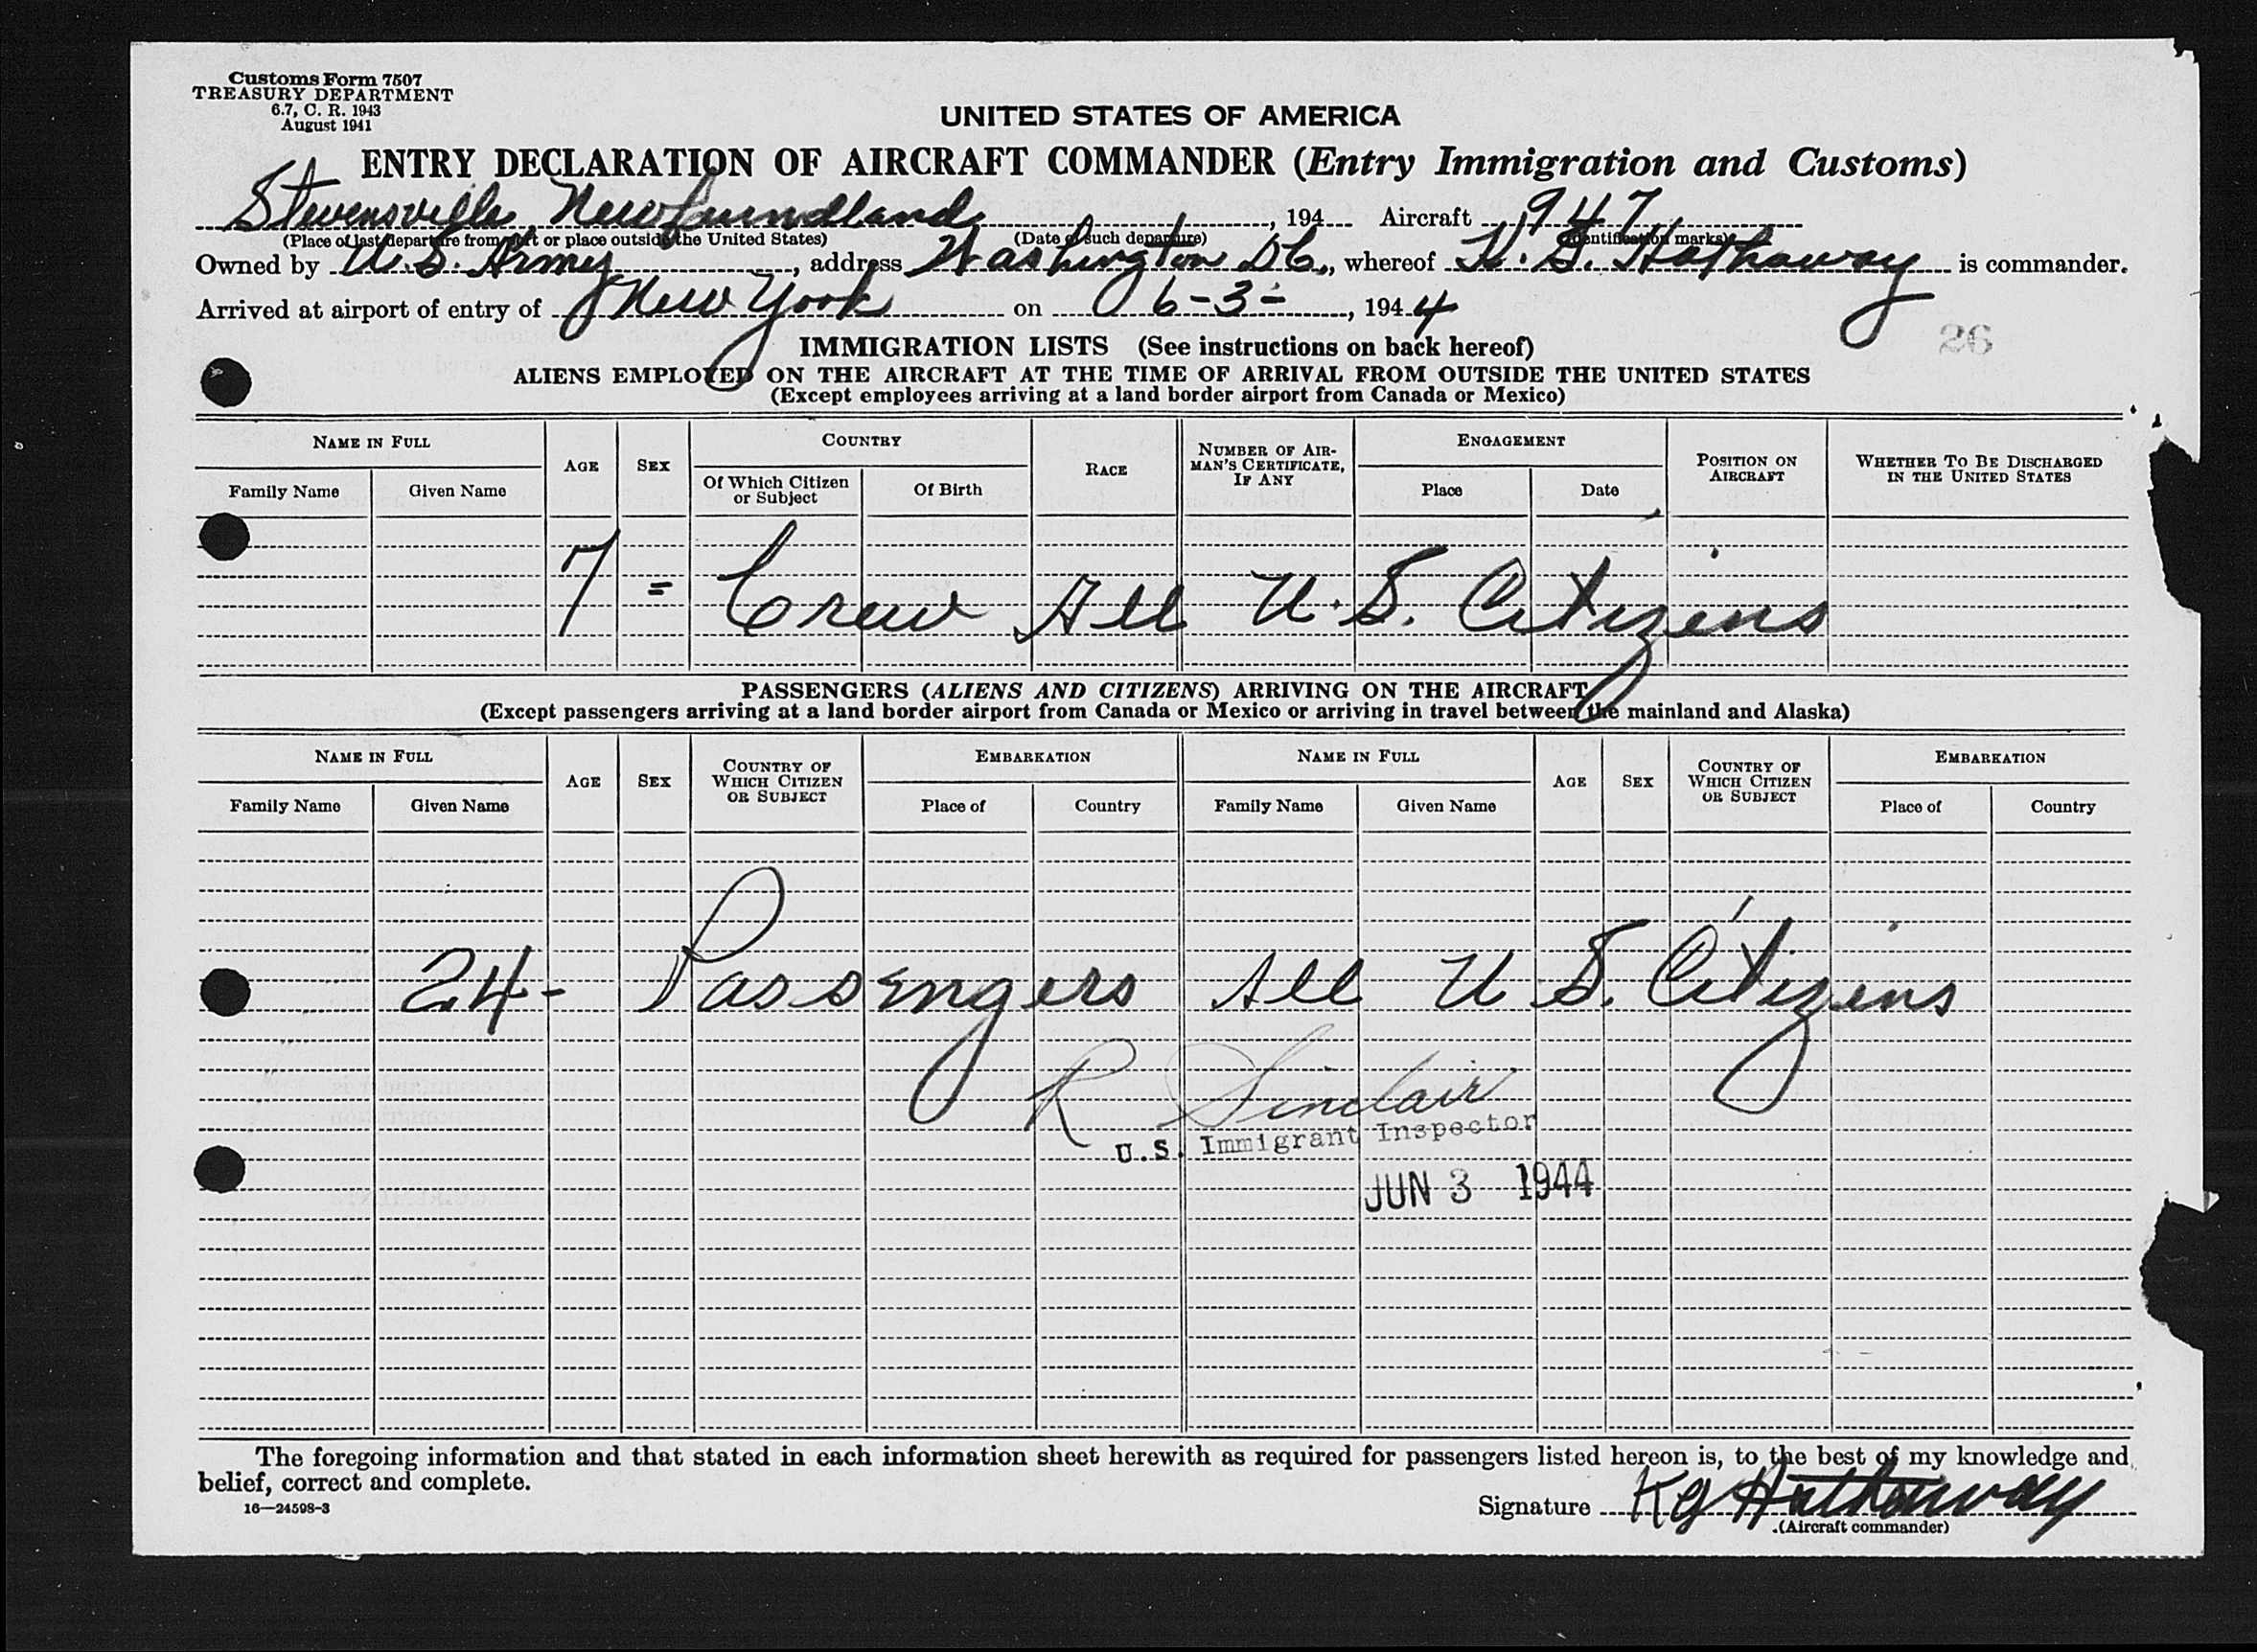 Customs Form 7507
TREASURY DEPARTMENT
6.7, C. R. 1943
August 1941
UNITED STATES OF AMERICA
ENTRY DECLARATION OF AIRCRAFT COMMANDER (Entry Immigration and Customs)
Stevensville Newfoundland, 194 Aircraft 947
(Place of last departure from port or place outside the United States) (Date of such departure) (Identification marks)
Owned by U.S. Army, address Washington DC, whereof K. G. Hathaway is commander.
Arrived at airport of entry of New York on 6-3-, 1944
26
IMMIGRATION LISTS (See instructions on back hereof)
ALIENS EMPLOYED ON THE AIRCRAFT AT THE TIME OF ARRIVAL FROM OUTSIDE THE UNITED STATES
(Except employees arriving at a land border airport from Canada or Mexico)
NAME IN FULL AGE SEX COUNTRY RACE NUMBER OF AIRMAN'S CERTIFICATE, IF ANY ENGAGEMENT POSITION ON AIRCRAFT WHETHER TO BE DISCHARGED IN THE UNITED STATES
Family Name Given Name Of Which Citizen or Subject Of Birth Place Date
7 = Crew All U.S. Citizens
PASSENGERS (ALIENS AND CITIZENS) ARRIVING ON THE AIRCRAFT
(Except passengers arriving at a land border airport from Canada or Mexico or arriving in travel between the mainland and Alaska)
NAME IN FULL AGE SEX COUNTRY OF WHICH CITIZEN OR SUBJECT EMBARKATION NAME IN FULL AGE SEX COUNTRY OF WHICH CITIZEN OR SUBJECT EMBARKATION
Family Name Given Name Place of Country Family Name Given Name Place of Country
24 - Passengers All U S. Citizens
R Sinclair
U.S. Immigrant Inspector
JUN 3 1944
The foregoing information and that stated in each information sheet herewith as required for passengers listed hereon is, to the best of my knowledge and
belief, correct and complete.
16—24598-3
Signature KG Hathaway
(Aircraft commander)